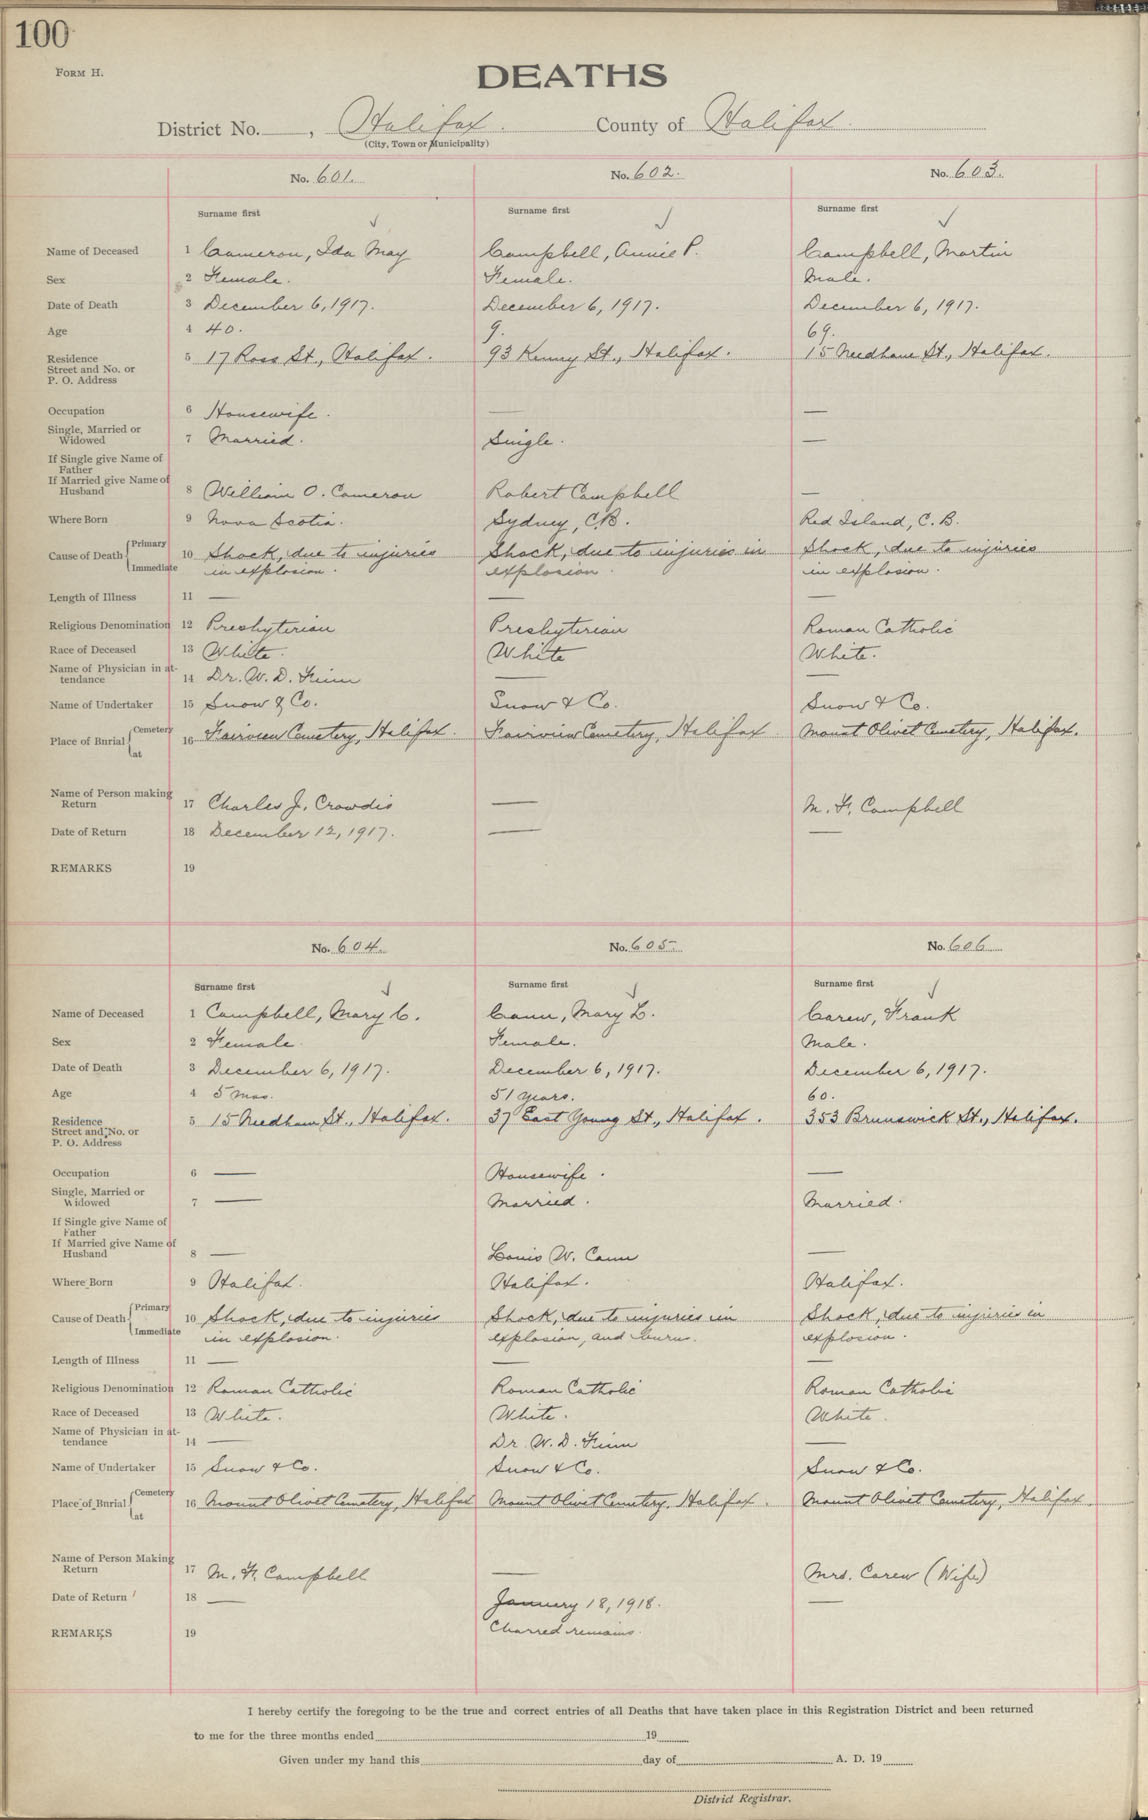 100
FORM H.
DEATHS
District No. , Halifax. County of Halifax.
(City, Town or Municipality)
No. 601. No. 602. No. 603.
Surname first Surname first Surname first
Name of Deceased 1 Cameron, Ida May Campbell, Annie P. Campbell, Martin
Sex 2 Female. Female. Male.
Date of Death 3 December 6, 1917. December 6, 1917. December 6, 1917.
Age 4 40. 9. 69.
Residence Street and No. or P. O. Address 5 17 Ross St., Halifax. 93 Kenny St., Halifax. 15 Needham St., Halifax.
Occupation 6 Housewife. — —
Single, Married or Widowed 7 Married. Single. —
If Single give Name of Father
If Married give Name of Husband 8 William O. Cameron Robert Campbell —
Where Born 9 Nova Scotia. Sydney, C.B. Red Island, C.B.
Cause of Death Primary 10 Shock, due to injuries Shock, due to injuries in Shock, due to injuries
Immediate in explosion. explosion. in explosion.
Length of Illness 11 — — —
Religious Denomination 12 Presbyterian Presbyterian Roman Catholic
Race of Deceased 13 White. White White.
Name of Physician in attendance 14 Dr. W. D. Finn — —
Name of Undertaker 15 Snow & Co. Snow & Co. Snow & Co.
Place of Burial Cemetery at 16 Fairview Cemetery, Halifax. Fairview Cemetery, Halifax Mount Olivet Cemetery, Halifax.
Name of Person making Return 17 Charles J. Crowdis — M. F. Campbell
Date of Return 18 December 12, 1917. — —
REMARKS 19
No. 604. No. 605. No. 606
Surname first Surname first Surname first
Name of Deceased 1 Campbell, Mary C. Cann, Mary L. Carew, Frank
Sex 2 Female Female. Male.
Date of Death 3 December 6, 1917. December 6, 1917. December 6, 1917.
Age 4 5 mos. 51 years. 60.
Residence Street and No. or P. O. Address 5 15 Needham St., Halifax. 37 East Young St., Halifax. 353 Brunswick St., Halifax.
Occupation 6 — Housewife. —
Single, Married or Widowed 7 — Married. Married.
If Single give Name of Father
If Married give Name of Husband 8 — Louis W. Cann —
Where Born 9 Halifax. Halifax. Halifax.
Cause of Death Primary 10 Shock, due to injuries Shock, due to injuries in Shock, due to injuries in
Immediate in explosion. explosion, and burns. explosion.
Length of Illness 11 — — —
Religious Denomination 12 Roman Catholic Roman Catholic Roman Catholic
Race of Deceased 13 White. White. White
Name of Physician in attendance 14 — Dr. W. D. Finn —
Name of Undertaker 15 Snow & Co. Snow & Co. Snow & Co.
Place of Burial Cemetery at 16 Mount Olivet Cemetery, Halifax Mount Olivet Cemetery, Halifax. Mount Olivet Cemetery, Halifax
Name of Person Making Return 17 M. F. Campbell — Mrs. Carew (Wife)
Date of Return 18 — January 18, 1918. —
REMARKS 19 Charred remains.
I hereby certify the foregoing to be the true and correct entries of all Deaths that have taken place in this Registration District and been returned
to me for the three months ended 19
Given under my hand this day of A. D. 19
District Registrar.